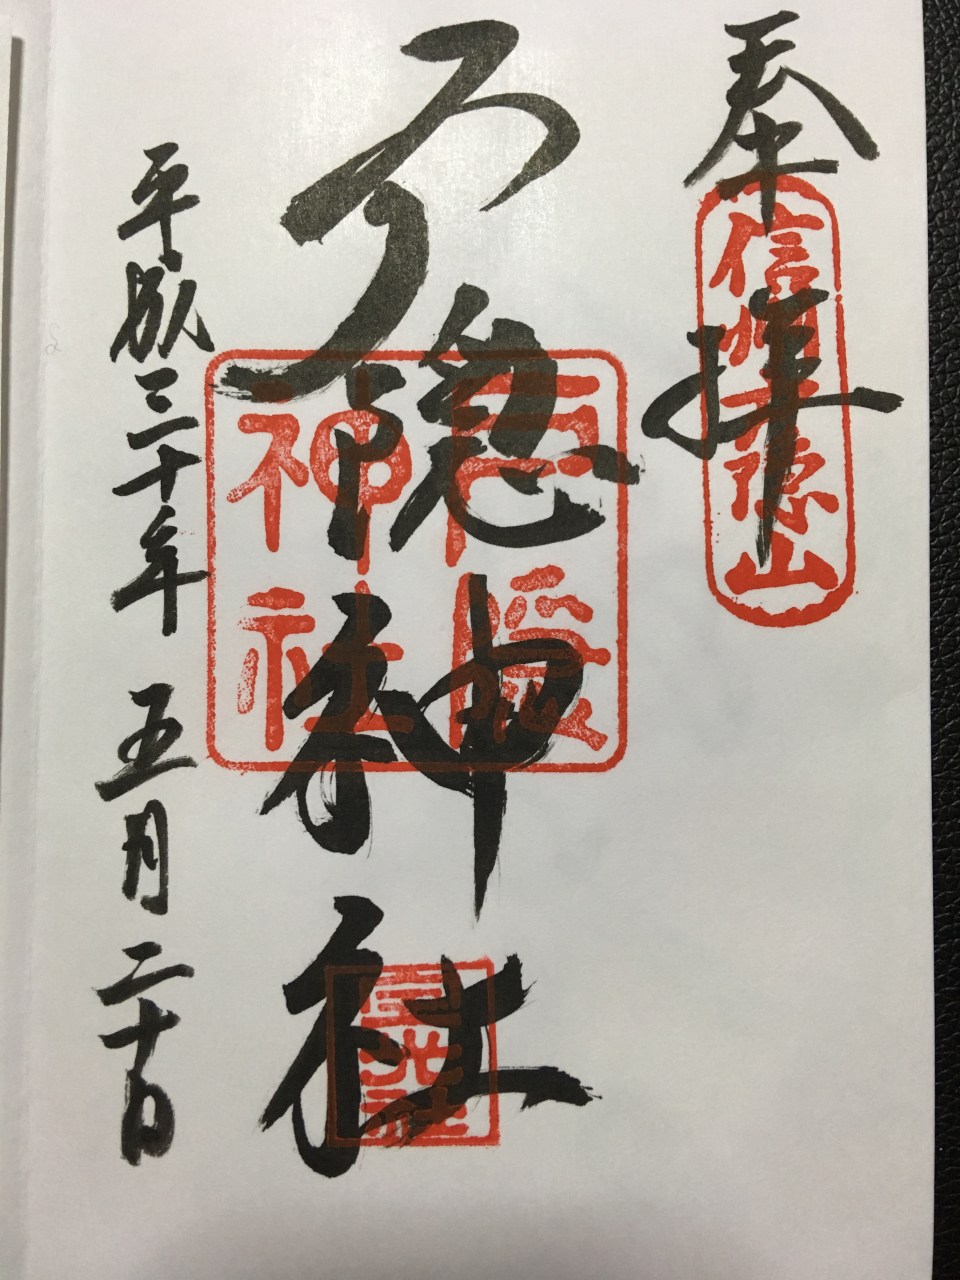 奉拝
信州戸隠山
戸隠神社
戸隠神社
宝光社
平成三十年 五月二十日